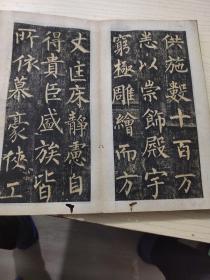 供施數十百万
悉以崇飾殿宇
窮極雕繪而方
丈匡床靜慮自
得貴臣盛族皆
所依慕豪俠工